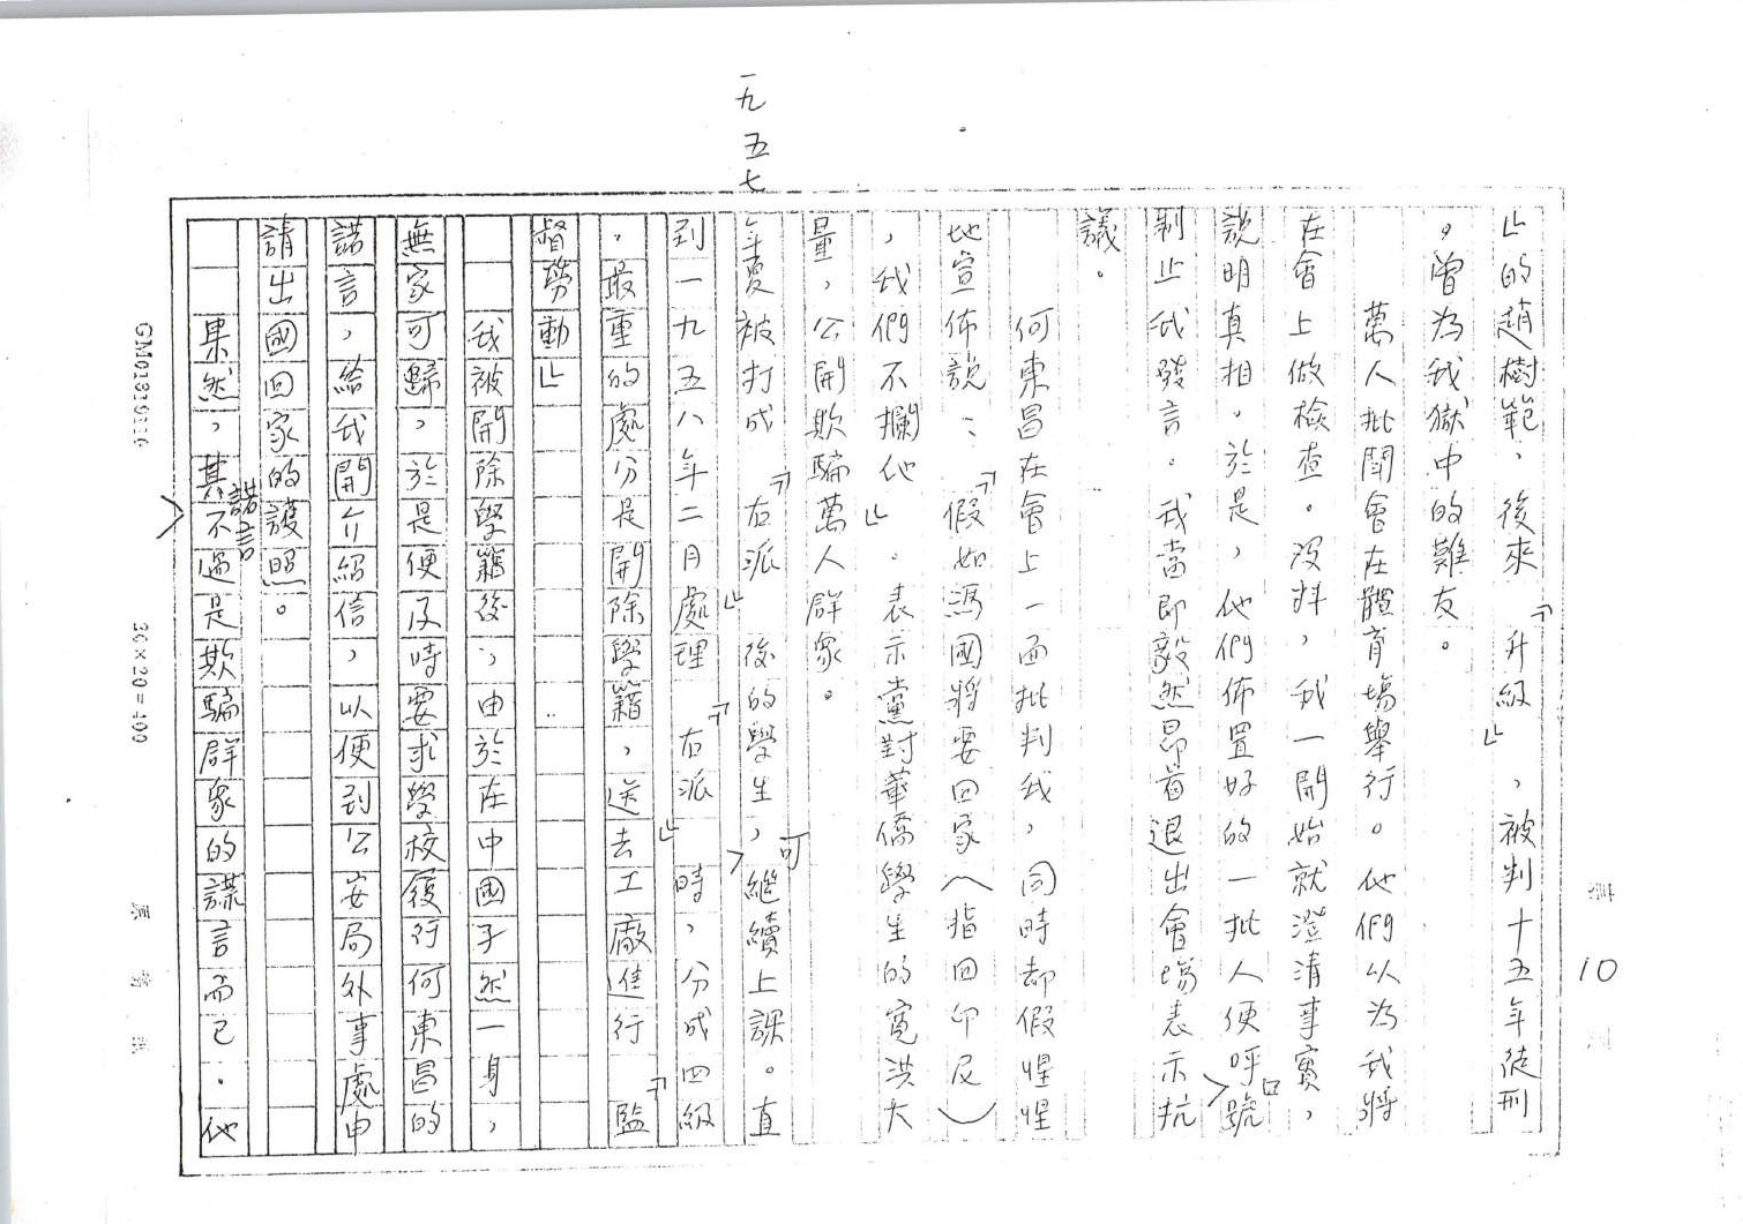 」的趙樹範，後來『升級』，被判十五年徒刑
。曾為我獄中的難友。
萬人批鬥會在體育場舉行。他們以為我將
在會上做檢查。沒料，我一開始就澄清事實，
說明真相。於是，他們佈置好的一批人便呼口號
制止我發言。我當即毅然昂首退出會場表示抗
議。
何東昌在會上一面批判我，同時却假惺惺
地宣佈說：『假如馮國將要回家（指回印尼）
，我們不攔他』。表示黨對華僑學生的寬洪大
量，公開欺騙萬人群眾。
一九五七
年夏被打成『右派』後的學生，可繼續上課。直
到一九五八年二月處理『右派』時，分成四級
，最重的處分是開除學籍，送去工廠進行『監
督勞動』
我被開除學籍後，由於在中國孑然一身，
無家可歸，於是便及時要求學校履行何東昌的
諾言，給我開介紹信，以便到公安局外事處申
請出國回家的護照。
果然，其諾言不過是欺騙群眾的謀言而已。他
10
GM01
20×20=400